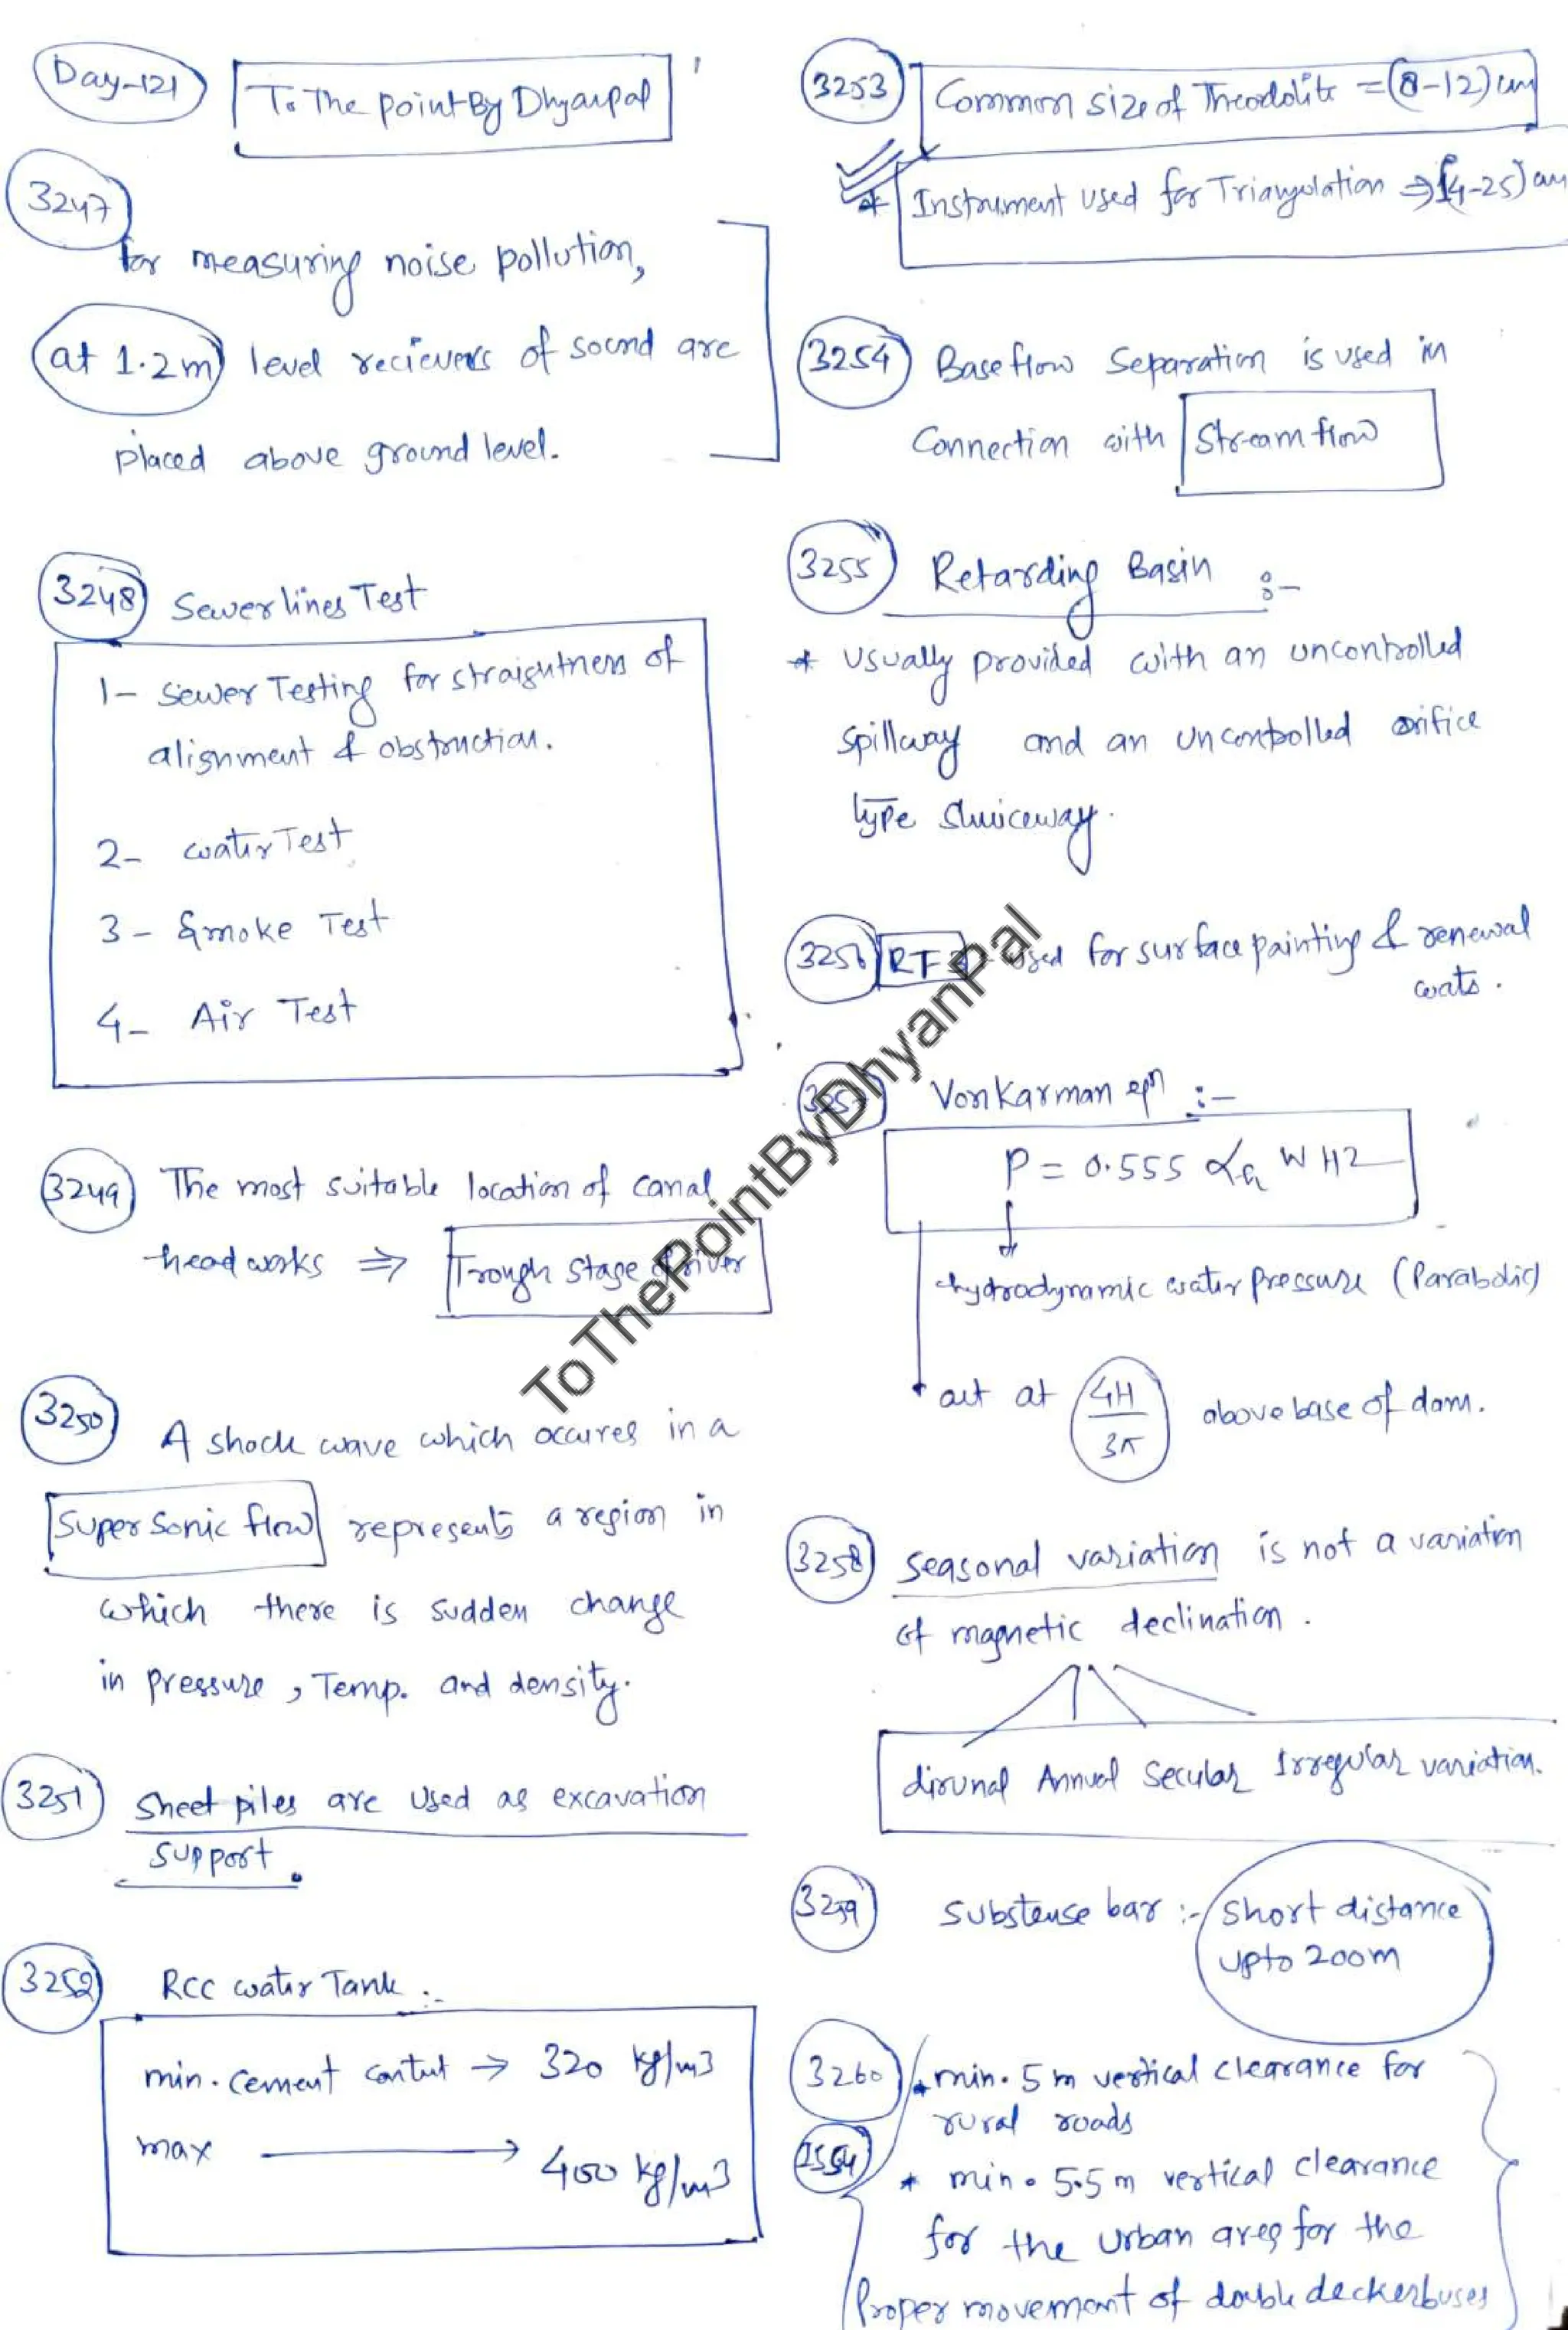 Day-121
To The point By Dhyanpal
3247
for measuring noise pollution,
at 1.2m level recievers of sound are
placed above ground level.
3248 Sewer lines Test
1- Sewer Testing for straightness of
alignment & obstruction.
2- water Test
3- Smoke Test
4- Air Test
3249 The most suitable location of canal
head works ⇒ Trough stage of river
3250 A shock wave which occures in a
Super Sonic flow represents a region in
which there is sudden change
in pressure, Temp. and density.
3251 Sheet piles are used as excavation
support.
3252 RCC water Tank :-
min. cement contut → 320 kg/m3
max → 400 kg/m3
3253 Common size of Threodolite = (8-12) cm
* Instrument used for Triangulation ⇒ (14-25) cm
3254 Base flow Separation is used in
Connection with Stream flow
3255 Retarding Basin :-
* usually provided with an uncontrolled
spillway and an uncontrolled orifice
type sluiceway.
3256 RT used for surface painting & renewal
coats.
Von Karman eqn :-
P = 0.555 αh W H2
hydrodynamic water pressure (Parabolic)
act at 4H/3π above base of dam.
3258 seasonal variation is not a variation
of magnetic declination.
dirunal Annual Secular Irregular variation.
3259 Substense bar :- short distance
upto 200m
3260 * min. 5 m vertical clearance for
rural roads
* min. 5.5 m vertical clearance
for the urban area for the
Proper movement of double decker buses
ToThePointByDhyanPal